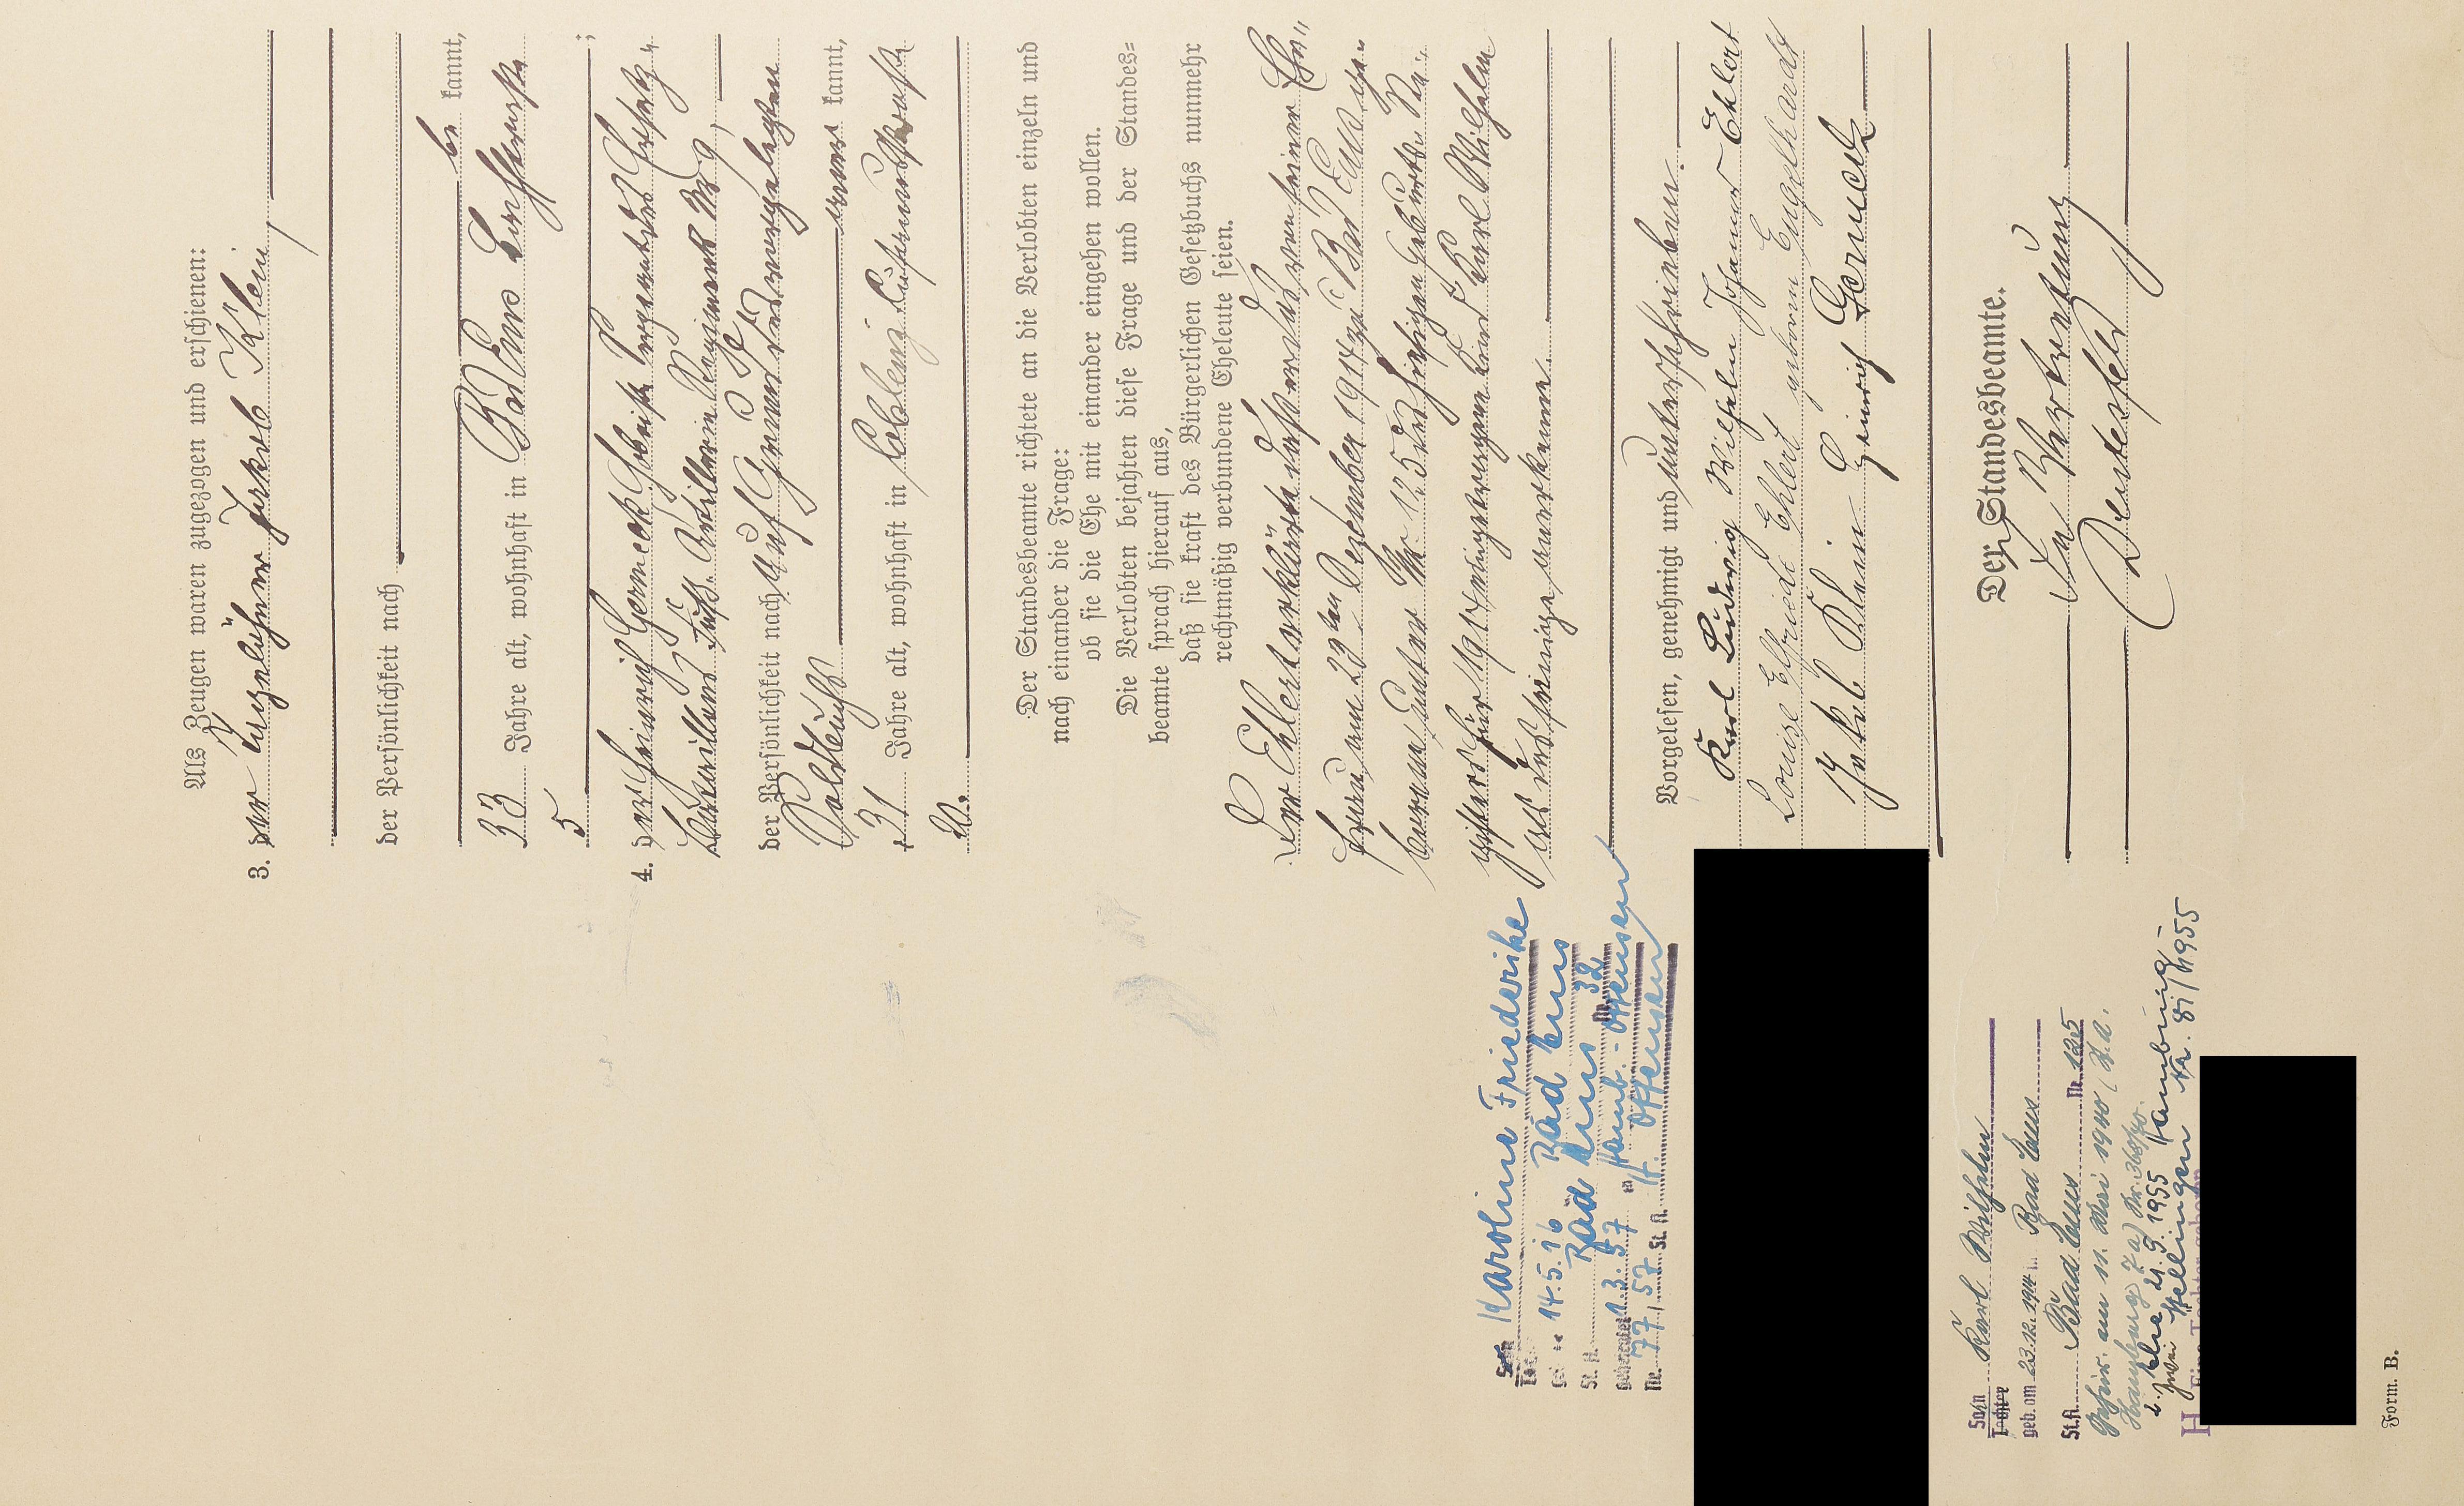 Als Zeugen waren zugezogen und erschienen:
3. der Tagelöhner Jakob Klein,
der Persönlichkeit nach
be kannt,
33 Jahre alt, wohnhaft in Bad Ems
5 ;
4. der Heinrich Gerneck
Artillerie Regiment No 9,
der Persönlichkeit nach auf Grund des vorgelegten
Soldbuchs aner kannt,
31 Jahre alt, wohnhaft in Coblenz
20.
Der Standesbeamte richtete an die Verlobten einzeln und
nach einander die Frage:
ob sie die Ehe mit einander eingehen wollen.
Die Verlobten bejahten diese Frage und der Standes=
beamte sprach hierauf aus,
daß sie kraft des Bürgerlichen Gesetzbuchs nunmehr
rechtmäßig verbundene Eheleute seien.
Der Ehlert erklärte daß er das von seiner Ehe=
frau am 23ten Dezember 1914 zu Bad Ems ge=
borene, unter Nr. 125 des hiesigen Geburts=Re=
gisters für 1914 eingetragene Kind Karl Wilhelm
als das seinige anerkenne.
Vorgelesen, genehmigt und unterschrieben.
Karl Ludwig Wilhelm Johannes Ehlert
Louise Elfriede Ehlert geborene Engelhardt
Jakob Klein
Heinrich Gerneck
Der Standesbeamte.
In Vertretung
Karoline Friederike
14.5.16 Bad Ems
St. A. Bad Ems Nr. 32
geheiratet 1.3.57 in Hamb.-Ottensen
Nr. 77/57 St. A. H. Ottensen
Sohn Karl Wilhelm
Tochter
geb. am 23.12.1914 in Bad Ems
St.A. Bad Ems Nr. 125
Geheir. am 11. Mai 1940 (St.A.
Hamburg 7a) Nr. 368/40.
2. Ehe 21.5.1955 Hamburg-
Nr. 81/1955
Form. B.